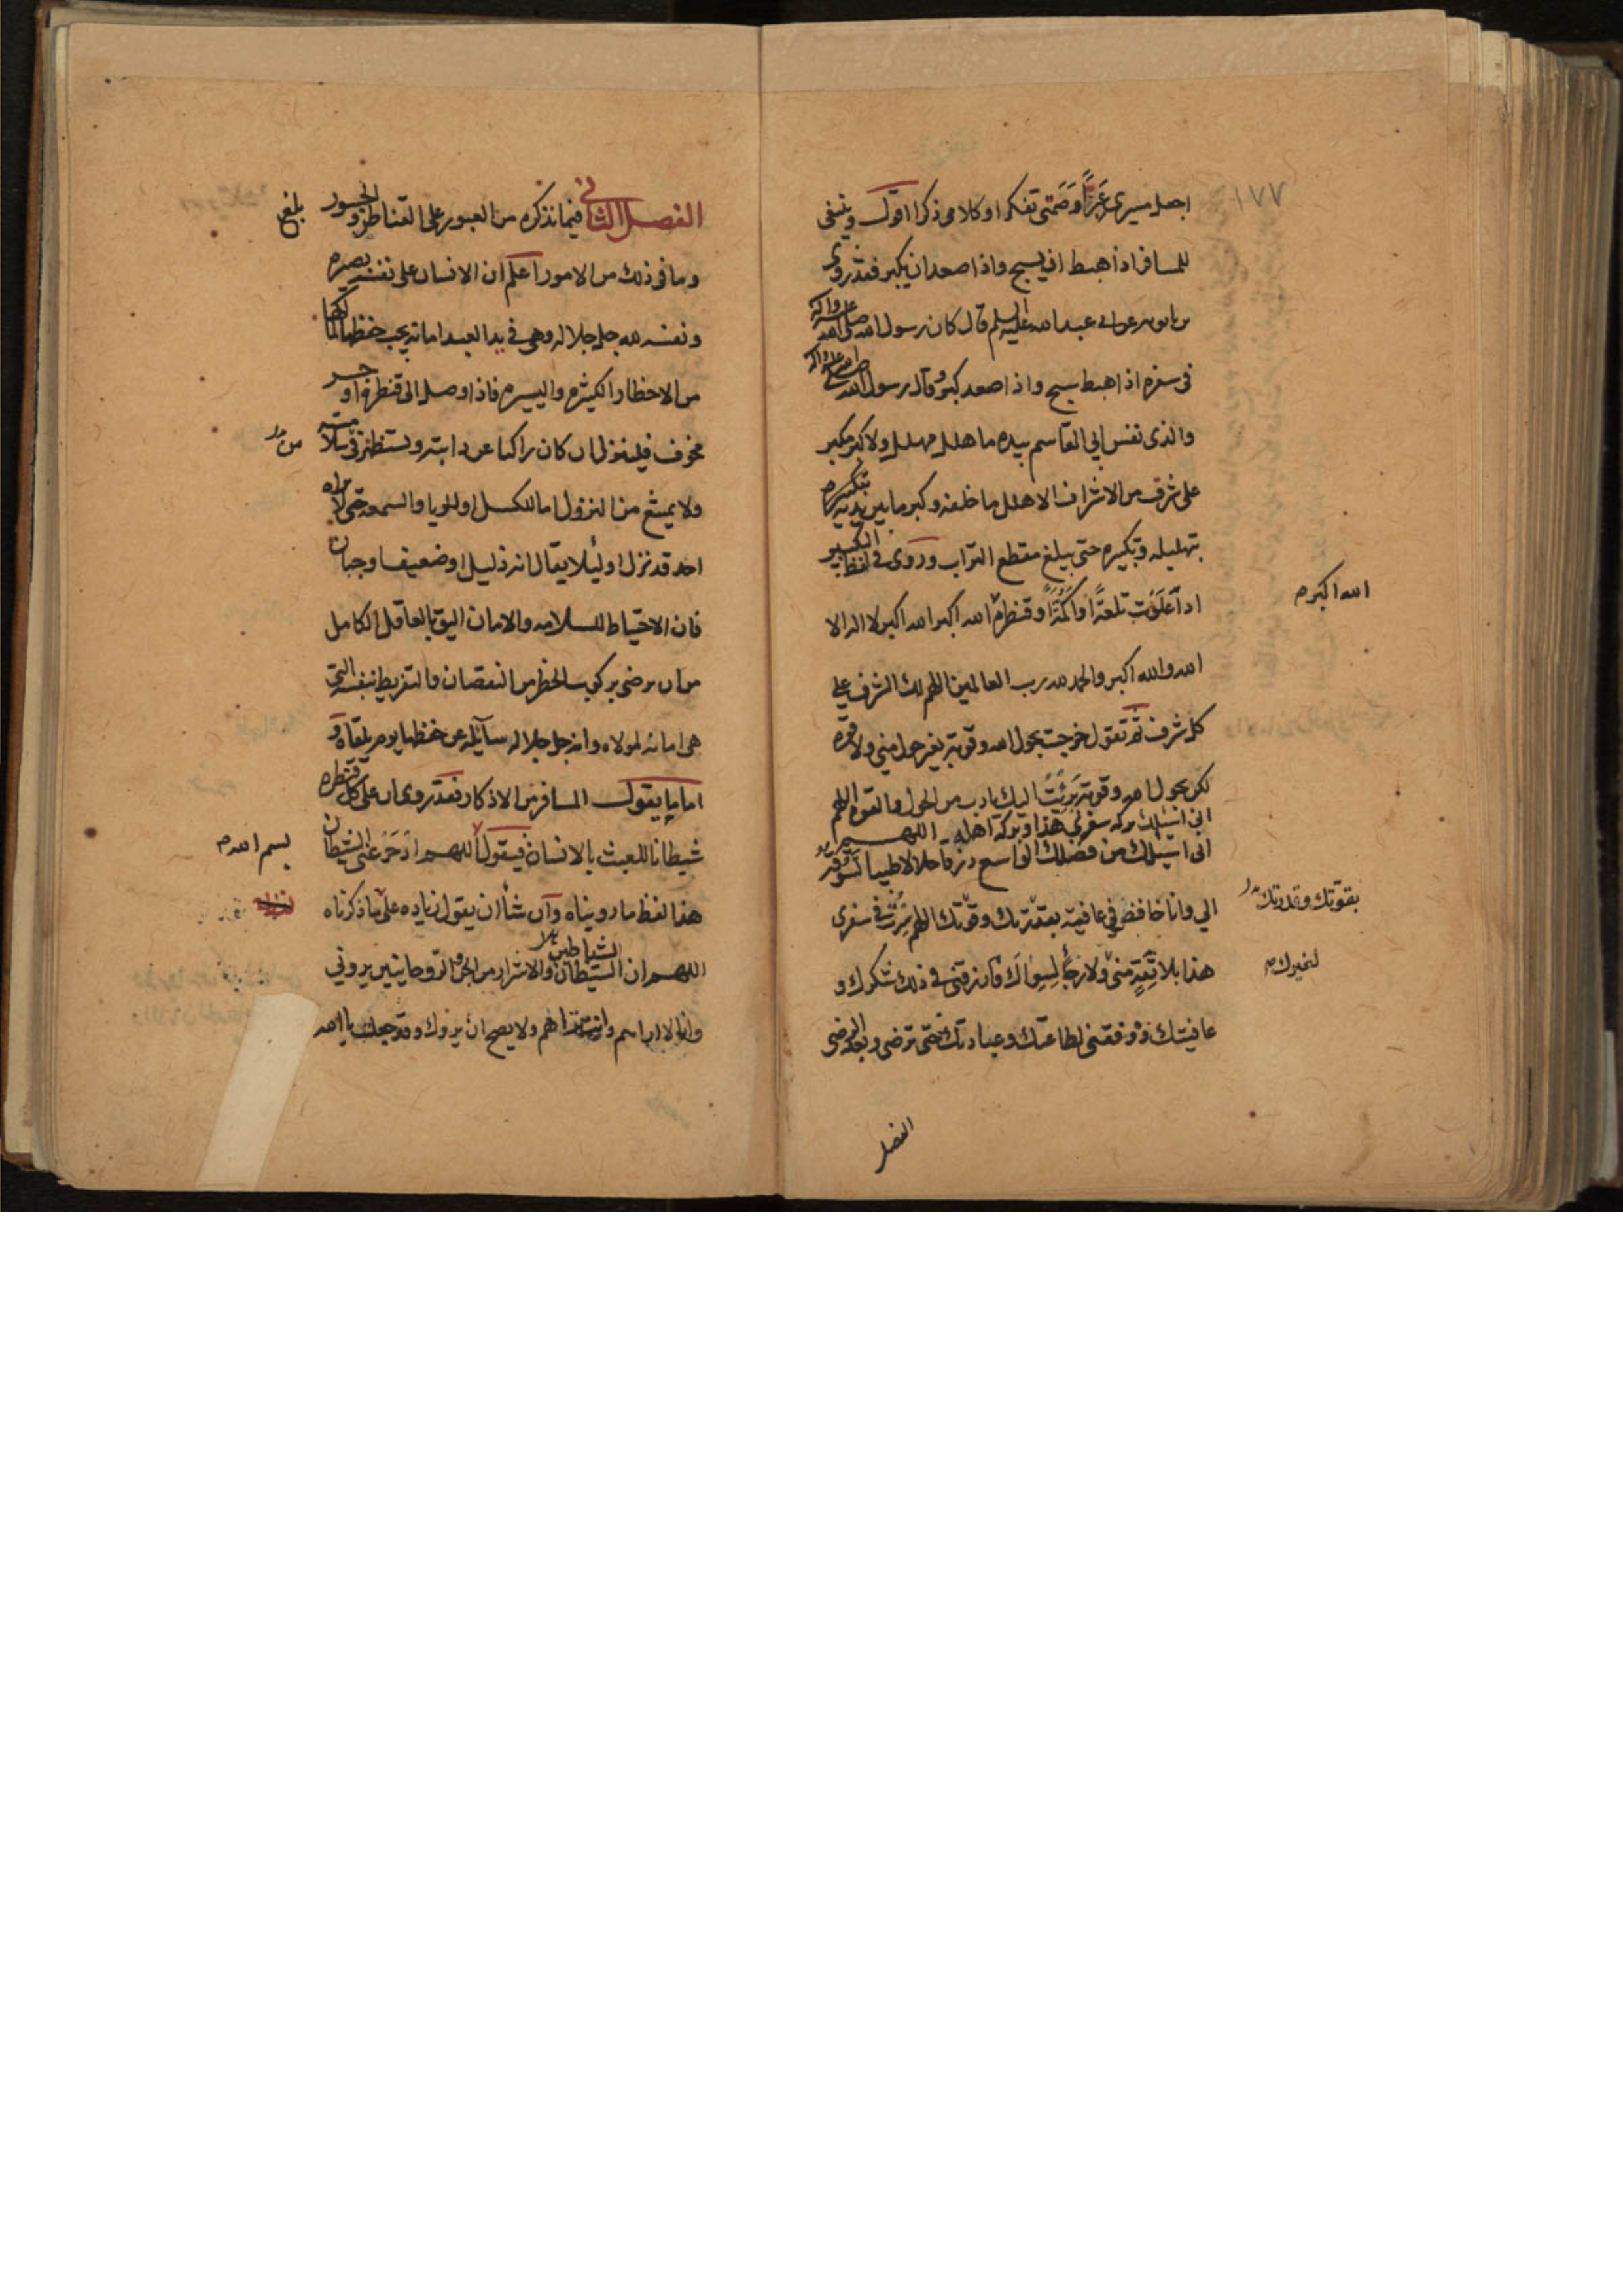 ١٧٧
اجعل مسيري عَبَرًا وَصَمتي تفكرا وكلامي ذكرا اقول وينبغي
للمسافر اذا هبط ان يسبح واذا صعد ان يكبر فقد روى
عن ابي عبد الله عليه السلم قال كان رسول الله صلى الله عليه واله
في سفره اذا هبط سبح واذا صعد كبر وقال رسول الله صلى الله عليه واله
والذى نفس ابي القاسم بيده ما هلل مهلل ولا كبر مكبر
على شرف من الاشراف الا هلل ما خلفه وكبر ما بين يديه بتكبيره
بتهليله وتكبيره حتى يبلغ مقطع التراب وروى في لفظ التكبير
اذا عَلَوْت تلعةً او اكمَةً او قنطرة الله اكبر الله اكبر لا اله الا
الله اكبر
الله والله اكبر والحمد لله رب العالمين اللهم لك الشرف على
كل شرف ثم تقول خرجت بحول الله وقوته بغير حول مني ولا قوة
لكن بحول الله وقوته بَرِئْتُ اليك يا رب من الحول والقوه اللهم
اني اسئلك بركة سفري هذا وبركة اهله اللهم
اني اسئلك من فضلك الواسع رزقا حلالا طيبا تسوقه
الي وانا خافض في عافية بقدرتك وقوتك اللهم سِرْت في سفري
بقوتك وقدرتك
هذا بلا ثِقَةٍ مني ولا رجاءٍ لسِوَاكَ فارزقني في ذلك شكرك و
لغيرك
عافيتك ووفقني لطاعتك وعبادتك حتى ترضى وبعد الرضى
الفصل
الفصل الثاني فيما نذكره من العبور على القناطر والجسور
بلغ
وما في ذلك من الامور اعلم ان الانسان على نفسه بصيره
ونفسه لله جل جلاله وهي في يد العبد امانة يجب حفظها لمالكها
من الاخطار الكثيره واليسيره فاذا وصل الى قنطرة او جسر
مخوف فلينزل ان كان راكبا عن دابته ويستظهر في سلامته
من
ولا يمتنع من النزول اما للكسل او للريا والسمعه حتى لا يراه
احد قد نزل او لئلا يقال انه ذليل او ضعيف او جبان
فان الاحتياط للسلامه والامان اليق بالعاقل الكامل
من ان يرضى بركوب الخطر من النقصان والتفريط بنفسه التي
هي امانه لمولاه وانه جل جلاله سآئله عن حفظها يوم يلقاه و
اما ما يقول المسافر من الاذكار فقد روى ان على كل قنطره
شيطانا للعبث بالانسان فيقول اللهم ادحَرْ عنى الشيطان
بسم الله
هذا لفظ ما رويناه وان شآ ان يقول زياده على ما ذكرناه
اللهم ان الشيطان والاشرار من الجن والروحانيين يروني
الشياطين
وانا لا اراهم وانت تراهم ولا يصح ان يروك وتوجهت يا الله